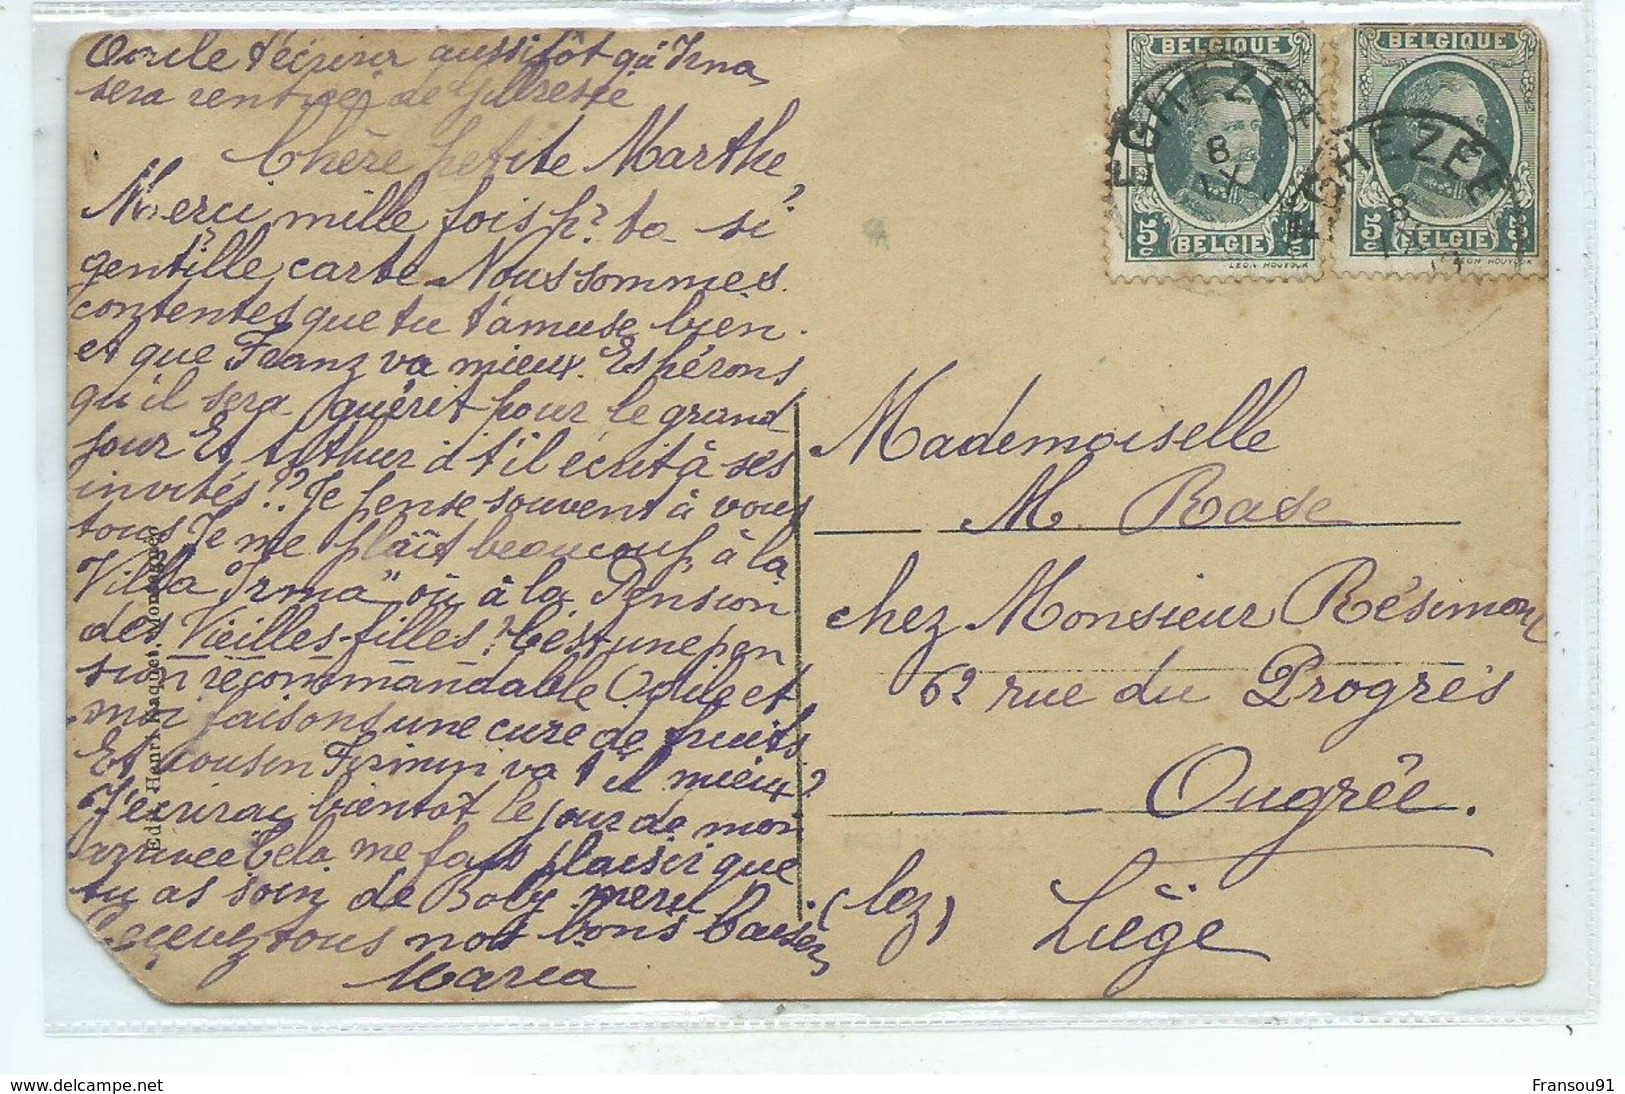 t'écrira aussitôt qu'Irma
sera rentrée de
Chère petite Marthe,
Merci mille fois pr ta si
gentille carte. Nous sommes
contentes que tu t'amuse bien.
et que Franz va mieux. Espérons
qu'il sera guérit pour le grand
jour Et Arthur a t'il écrit à ses
invités!? Je pense souvent à vous
tous Je me plaît beaucoup, à la
Villa "Irma" ou à la Pension
des Vieilles-filles? C'est une pen
sion recommandable Odile et
moi faisons une cure de fruits.
Et cousin Firmin va t il mieux?
J'écrirai bientôt le jour de mon
arrivée Cela me fais plaisir que
tu as soin de Boby merci
Recevez tous nos bons baisers
Maria
Edit. Henri Kaquet, Montegnée
BELGIQUE
5c BELGIE 5c
LEON HOUYOUX
BELGIQUE
5c BELGIE 5c
LEON HOUYOUX
EGHEZEE
8
EGHEZEE
8
Mademoiselle
M. Rase
chez Monsieur Résimont
62 rue du Progrès
Ougrée.
(lez) Liège
delcampe.net
Fransou91